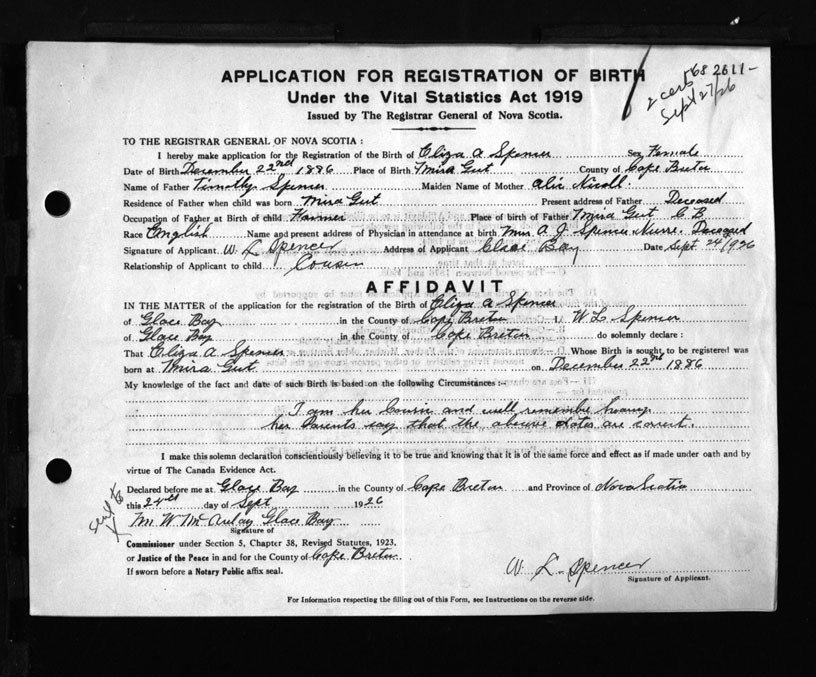 APPLICATION FOR REGISTRATION OF BIRTH
Under the Vital Statistics Act 1919
Issued by The Registrar General of Nova Scotia.
68 2611-
2 certs
Sept 27/26
TO THE REGISTRAR GENERAL OF NOVA SCOTIA :
I hereby make application for the Registration of the Birth of Eliza A Spencer Sex Female
Date of Birth December 22nd 1886 Place of Birth Mira Gut County of Cape Breton
Name of Father Timothy Spencer Maiden Name of Mother Alic Nicoll
Residence of Father when child was born Mira Gut Present address of Father Deceased
Occupation of Father at Birth of child Farmer Place of birth of Father Mira Gut C B
Race English Name and present address of Physician in attendance at birth Mrs A. J. Spencer Nurse. Deceased
Signature of Applicant W. L Spencer Address of Applicant Glace Bay Date Sept 24/926
Relationship of Applicant to child Cousin
AFFIDAVIT
IN THE MATTER of the application for the registration of the Birth of Eliza A Spencer
of Glace Bay in the County of Cape Breton I, W L Spencer
of Glace Bay in the County of Cape Breton do solemnly declare :
That Eliza A Spencer Whose Birth is sought to be registered was
born at Mira Gut on December 22nd 1886
My knowledge of the fact and date of such Birth is based on the following Circumstances :-
I am her Cousin and well remember hearing
her Parents say that the above dates are correct.
I make this solemn declaration conscientiously believing it to be true and knowing that it is of the same force and effect as if made under oath and by
virtue of The Canada Evidence Act.
Declared before me at Glace Bay in the County of Cape Breton and Province of Nova Scotia
this 24th day of Sept 1926
M W McAulay Glace Bay
Signature of
Commissioner under Section 5, Chapter 38, Revised Statutes, 1923,
or Justice of the Peace in and for the County of Cape Breton
If sworn before a Notary Public affix seal.
W. L. Spencer
Signature of Applicant.
For Information respecting the filling out of this Form, see Instructions on the reverse side.